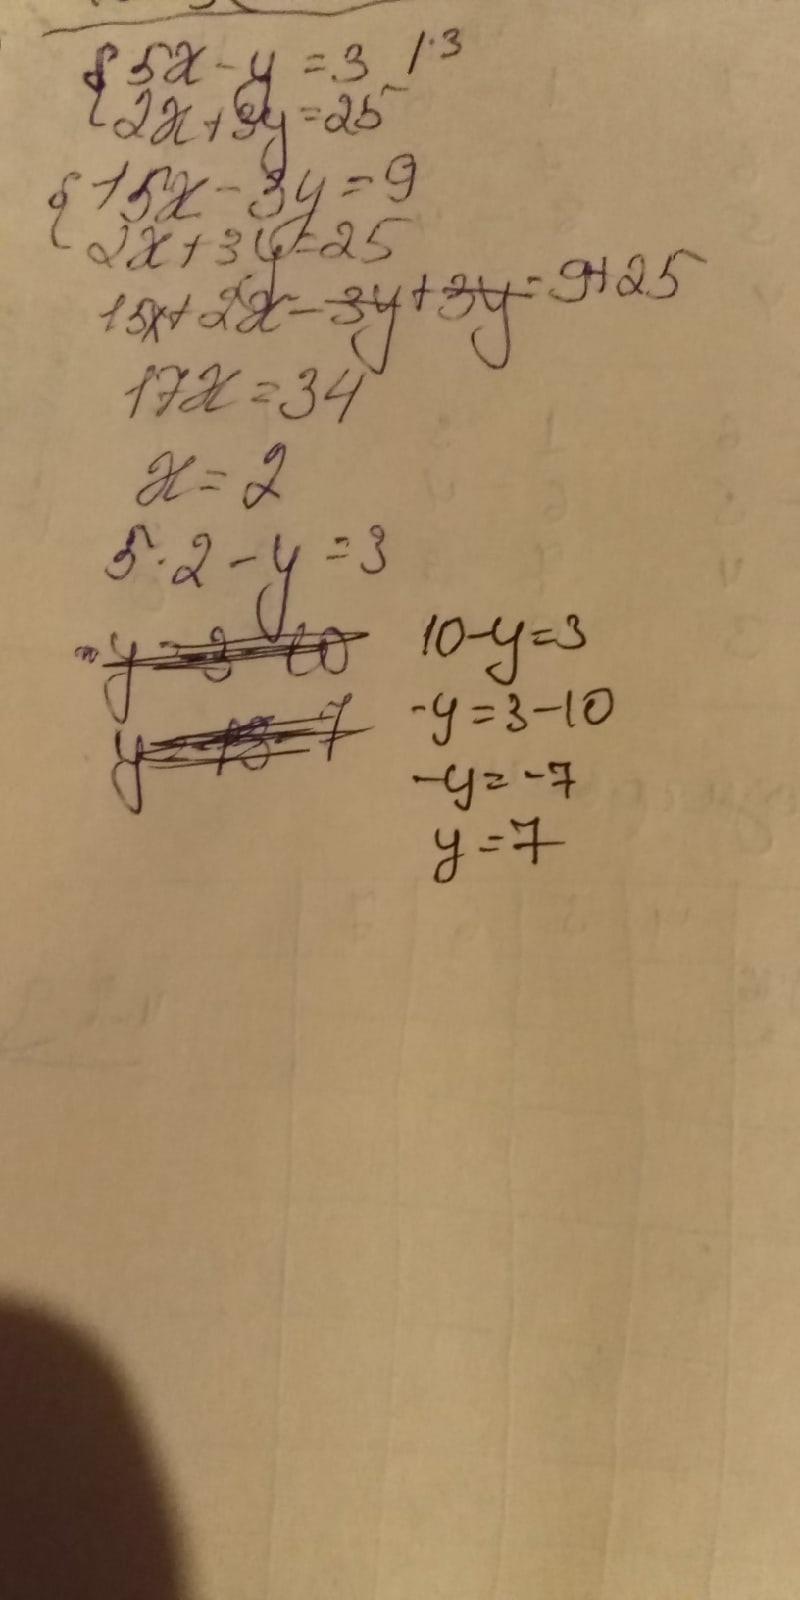 {5x-y=3 |·3
{2x+3y=25
{15x-3y=9
{2x+3y=25
15x+2x-3y+3y=9+25
17x=34
x=2
5·2-y=3
-y=3-10
10-y=3
-y=3-10
-y=-7
y=7